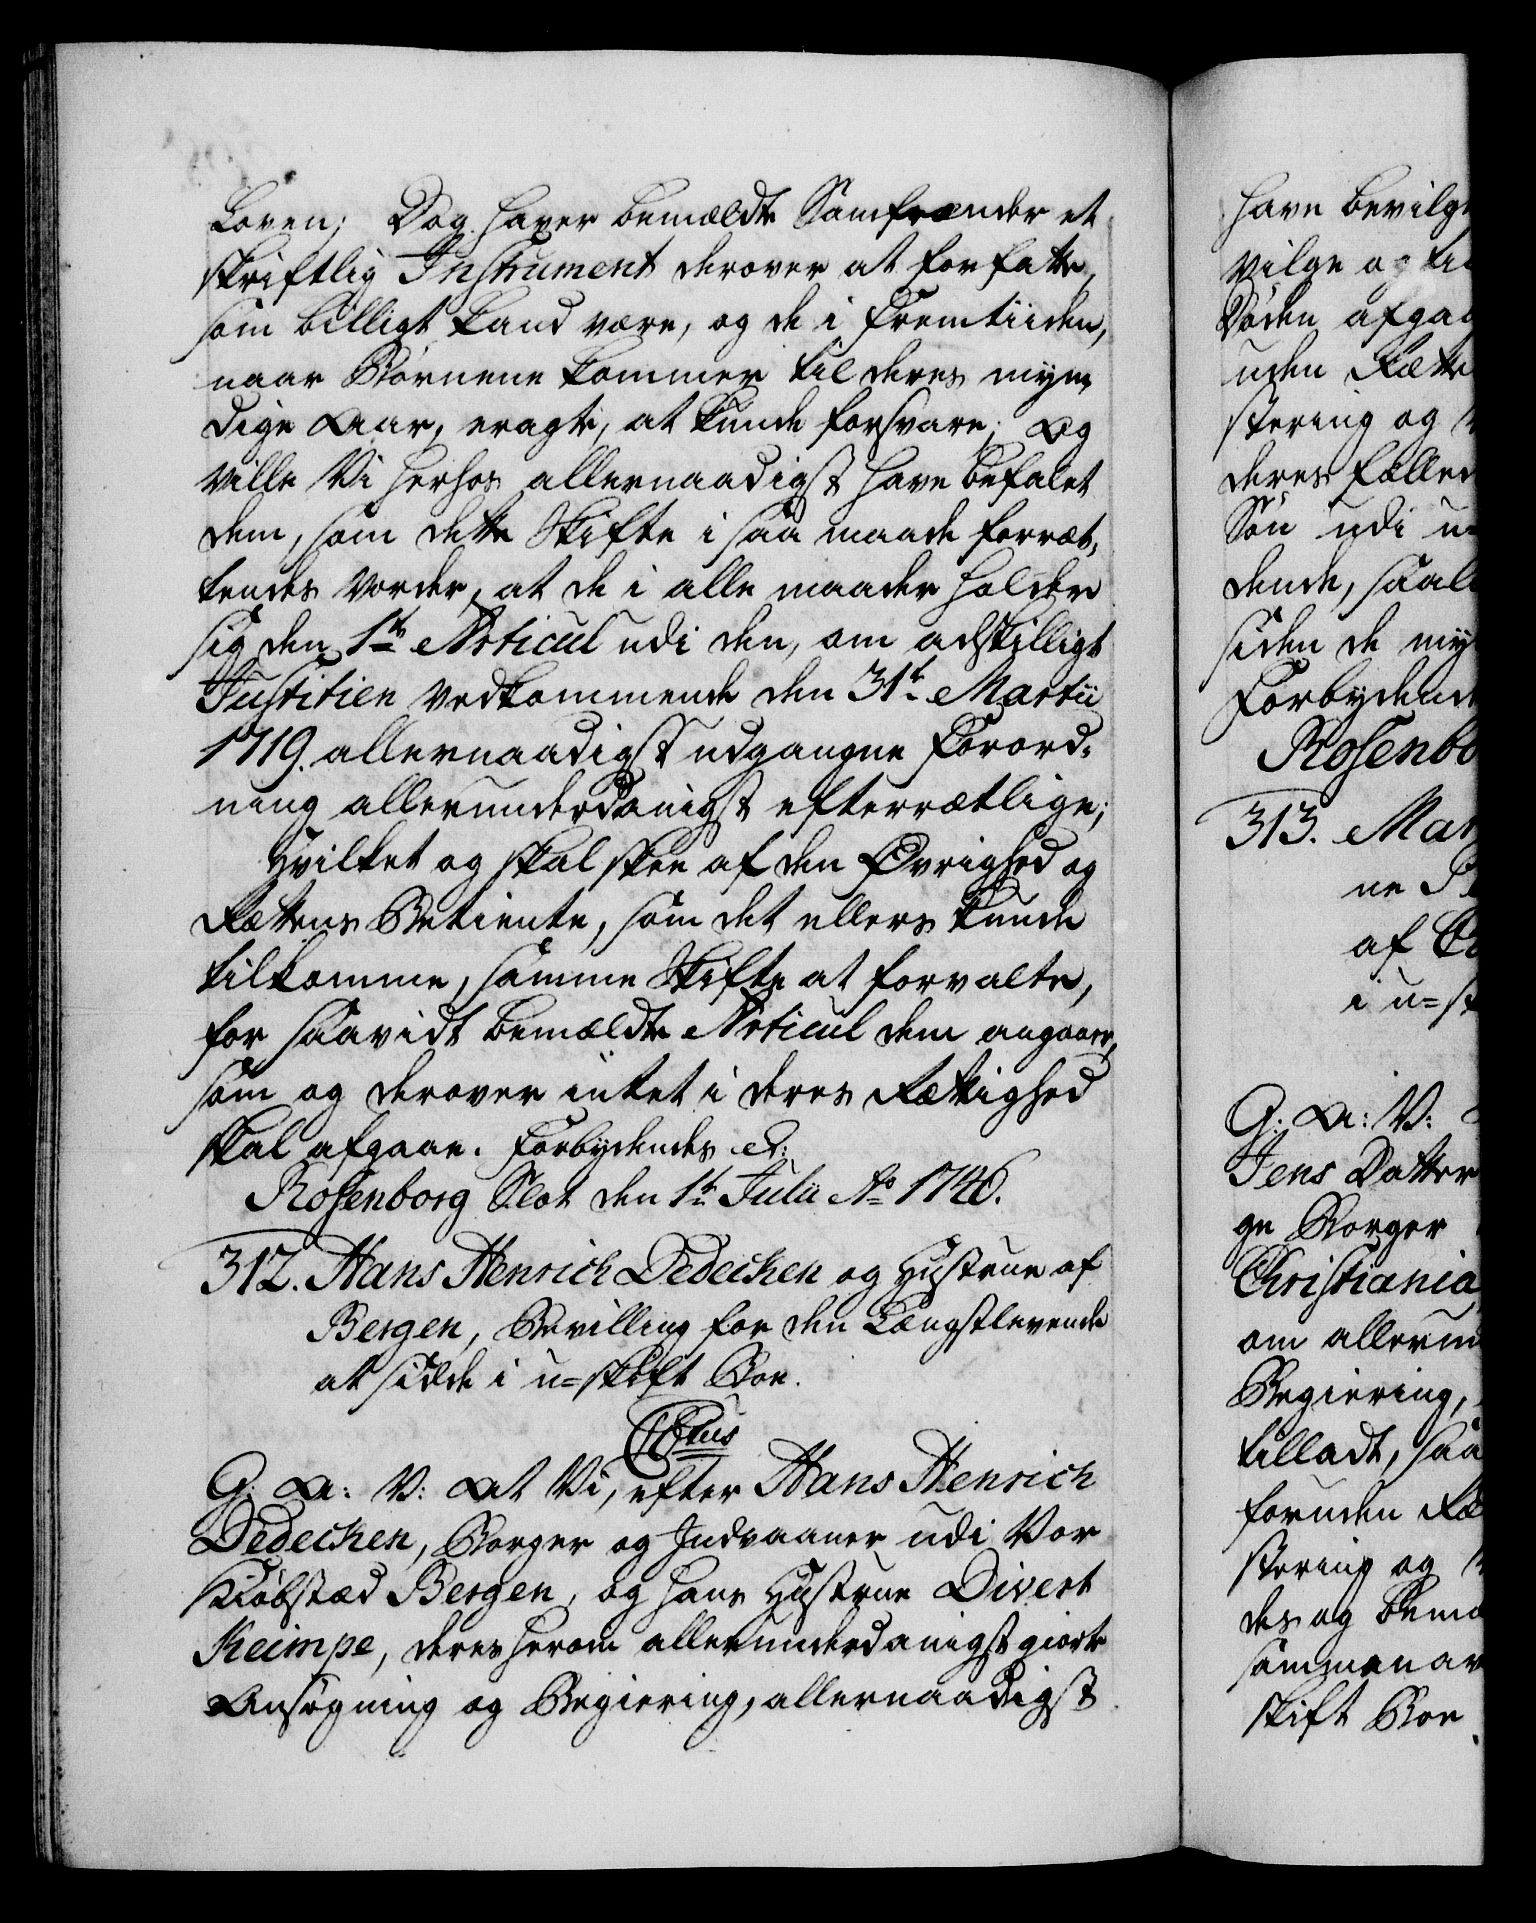 Loven; Dog haver bemældte Samfrænder et
skriftlig Instrument derover at forfatte,
som billigt kand være, og de i Fremtiiden,
naar Börnene kommer til deres myn¬
dige Aar, eragte, at kunde forsvare; Og
ville Vi herhos allernaadigst have befalet
dem, som dette Skifte i saa maade forret¬
tendes vorder, at de i alle maader holder
sig den 1te Articul udi den, om adskilligt
Justitien vedkommende den 31te Martii
1719. allernaadigst udgangne Forord¬
ning allerunderdanigst efterrætlige;
Hvilket og skal skee af den Øvrighed og
Rættens Betiente, som det ellers kunde
tilkomme, samme Skifte at forvalte,
for saavidt bemældte Articul dem angaaer,
som og derover intet i deres Rættighed
skal afgaae. Forbydendes etc:
Rosenborg Slot den 1te Julii Ao 1746.
312. Hans Henrich Dedechen og Hustrue af
Bergen, Bevilling for den Længstlevende
at sidde i u-skift Boe.
CPtus
G: A: V: At Vi, efter Hans Henrich
Dedechen, Borger og Indvaaner udi Vor
Kiöbstæd Bergen, og hans Hustrue Divert
Keimpe, deres herom allerunderdanigst giorte
Ansøgning og Begiering, allernaadigst
have bevilg
vilge og til
Döden afgaa
uden Rætte
stering og
deres Fælles
Sön udi u-
dende, saal
siden de my
Forbydend
Rosenbo
313. Mar
ne
af
i u-sk
G: A: V:
Jens Datter
ge Borger
Christiania,
om allerun
Begiering,
tilladt, saa
foruden Ræ
stering og
des og bemæ
sammenav
skift Boe